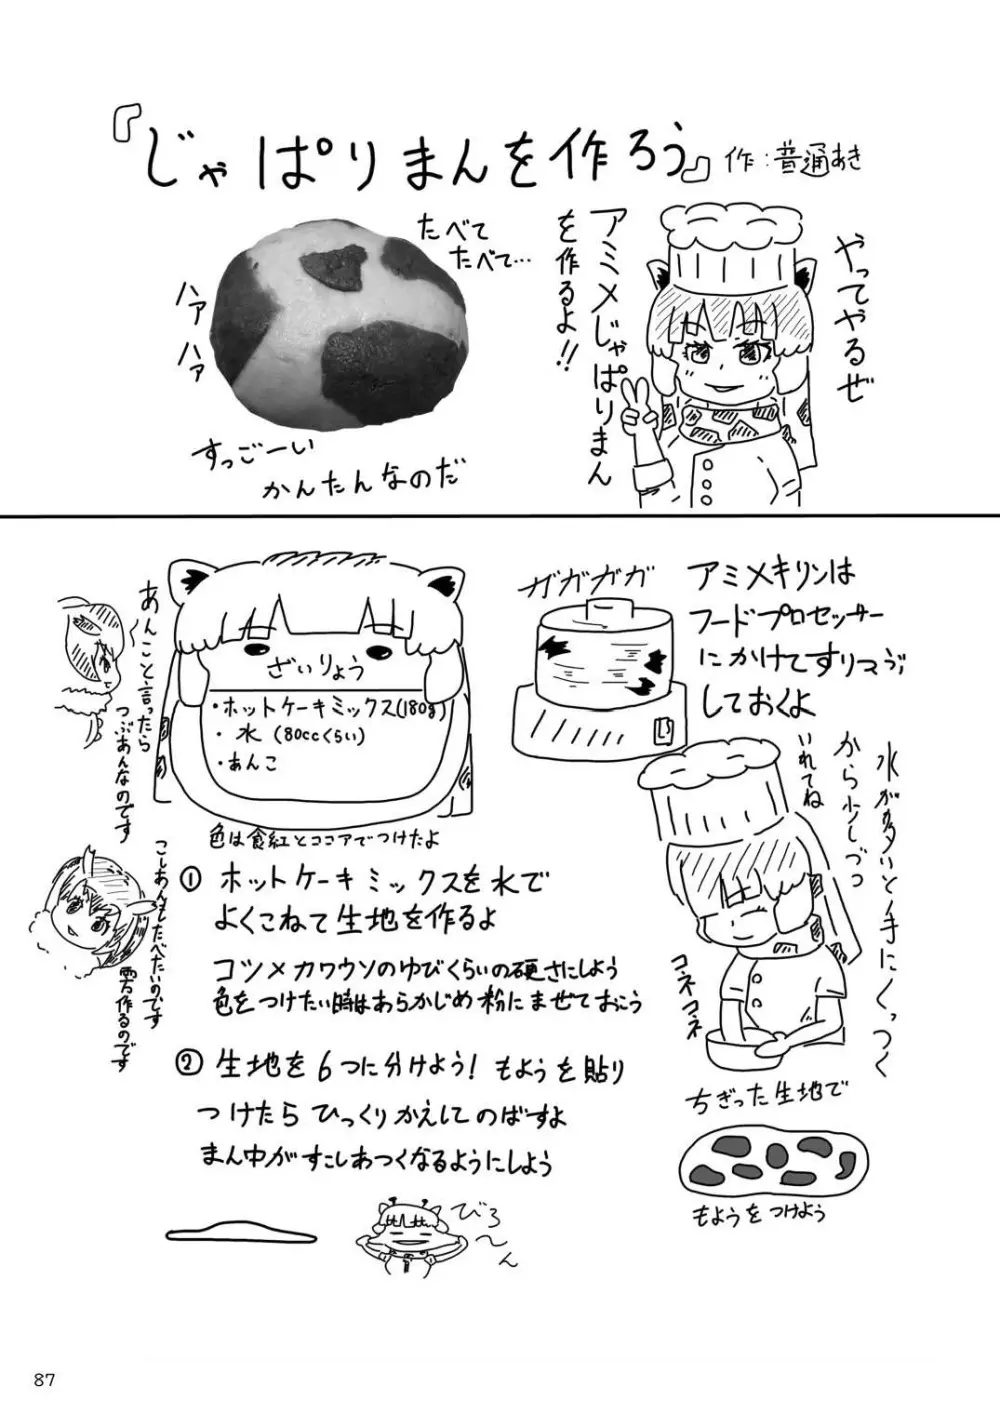 『じゃぱりまんを作ろう』作:普通あき
やってやるぜ
アミメじゃぱりまん
を作るよ!!
たべて
たべて…
ハァ
ハァ
すっごーい
かんたんなのだ
アミメキリンは
フードプロセッサー
にかけてすりつぶ
しておくよ
ガガガガ
ざいりょう
・ホットケーキミックス(180g)
・水(80ccくらい)
・あんこ
色は食紅とココアでつけたよ
あんこと言ったら
つぶあんなのです
こしあんもたべたいのです
雲作るのです
水が多いと手にくっつく
から少しづつ
いれてね
コネコネ
① ホットケーキミックスを水で
よくこねて生地を作るよ
コツメカワウソのゆびくらいの硬さにしよう
色をつけたい時はあらかじめ粉にまぜておこう
② 生地を6つに分けよう!もようを貼り
つけたらひっくりかえしてのばすよ
まん中がすこしあつくなるようにしよう
ちぎった生地で
もようをつけよう
びろ
〜ん
87